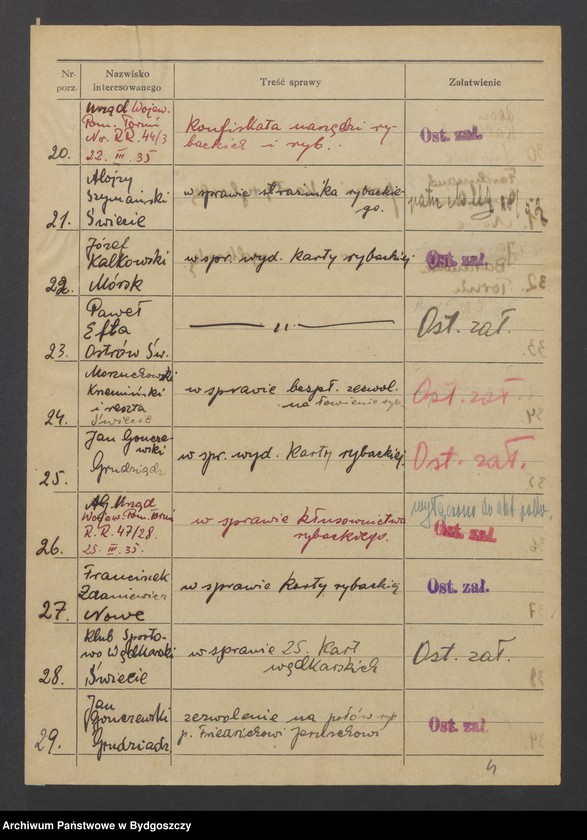 Nr. porz.
Nazwisko interesowanego
Treść sprawy
Załatwienie
20.
Urząd Wojew.
Pom. Toruń
Nr. R.R. 44/3
22. III. 35
Konfiskata narzędzi ry-
backich i ryb.
Ost. zał.
21.
Alojzy
Szymański
Świecie
w sprawie strażnika rybackie-
go.
22.
Józef
Kalkowski
Mórsk
w spr. wyd. karty rybackiej
Ost. zał.
23.
Paweł
Efta
Ostrów Św.
— " —
Ost. zał.
24.
i reszta
Świecie
w sprawie bezpł. zezwol.
na łowienie ryb
Ost. zał
25.
Jan Goncze-
wski
Grudziądz
w spr. wyd. Karty rybackiej.
Ost. zał.
26.
Urząd
Wojew. Pom. Toruń
R.R. 47/28.
25. III. 35.
w sprawie kłusownictwa
rybackiego.
wyłączono do akt
Ost. zał
27.
Franciszek
Zdaniewicz
Nowe
w sprawie karty rybackiej
Ost. zał.
28.
Klub Sporto-
wo Wędkarski
Świecie
w sprawie 25. Kart
wędkarskich
Ost. zał.
29.
Jan
Gonczewski
Grudziądz
zezwolenie na połów ryb
p. Friedrichowi
Ost. zał.
4
Archiwum Państwowe w Bydgoszczy